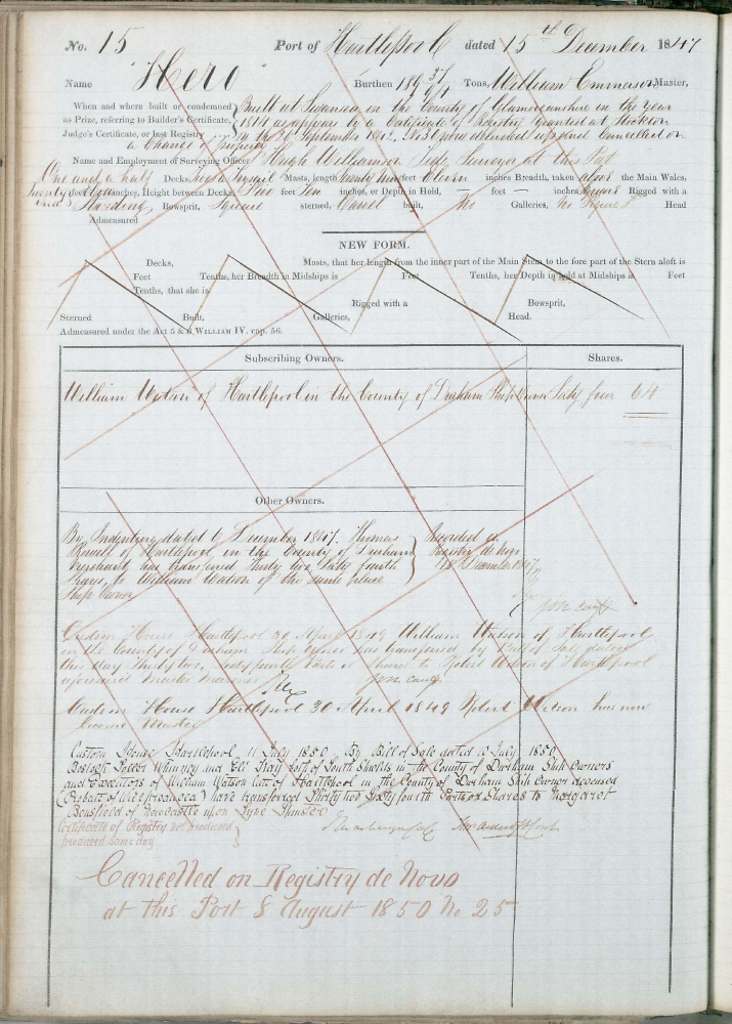 No. 15 Port of Hartlepool dated 15th December 1847
Name "Hero" Burthen 189 Tons, William Emmerson Master,
When and where built or condemned Built at Swansea in the County of Glamorganshire in the year
as Prize, referring to Builder's Certificate, 1814 as appears by a Certificate of Registry granted at Stockton
Judge's Certificate, or last Registry September No 30 now delivered up and Cancelled on
a Change of property
Name and Employment of Surveying Officer Hugh Williamson Tide Surveyor at this Port
One and a half Decks, Masts, length feet Eleven inches Breadth, taken above the Main Wales,
Twenty feet inches, Height between Decks, Five feet Ten inches, or Depth in Hold, — feet — inches, Rigged with a
Standing Bowsprit, Square sterned, Carvel built, No Galleries, No Figure Head
Admeasured
NEW FORM.
Decks, Masts, that her length from the inner part of the Main Stem to the fore part of the Stern aloft is
Feet Tenths, her Breadth in Midships is Feet Tenths, her Depth in hold at Midships is Feet
Tenths, that she is Rigged with a Bowsprit,
Sterned Built, Galleries, Head.
Admeasured under the Act 5 & 6 WILLIAM IV. cap. 56.
Subscribing Owners. Shares.
William Watson of Hartlepool in the County of Durham Ship Owner Sixty four 64
Other Owners.
By Indenture dated 6 December 1847. Thomas
Rowell of Hartlepool, in the County of Durham
Merchant has transferred Thirty two Sixty fourth
Shares to William Watson of the same place
Ship Owner
Recorded at
Registry de Novo
December 1847
Custom House Hartlepool 30 April 1849 William Watson of Hartlepool
in the County of Durham Ship Owner has transferred by Bill of Sale dated
this day Thirty two Sixty fourth Parts or Shares to Robert Watson of Hartlepool
aforesaid Master Mariner
Custom House Hartlepool 30 April 1849 Robert Watson has now
become Master
Custom House Hartlepool 11 July 1850, By Bill of Sale dated 10 July 1850,
Whinney and both of South Shields in the County of Durham Ship Owners
and Executors of William Watson late of Hartlepool in the County of Durham Ship Owner deceased
(Probate of Will produced) have transferred Thirty two Sixty fourth Parts or Shares to Margaret
Bousfield of Newcastle upon Tyne Spinster
Certificate of Registry not produced
produced same day
Cancelled on Registry de Novo
at this Port 8 August 1850 No 25